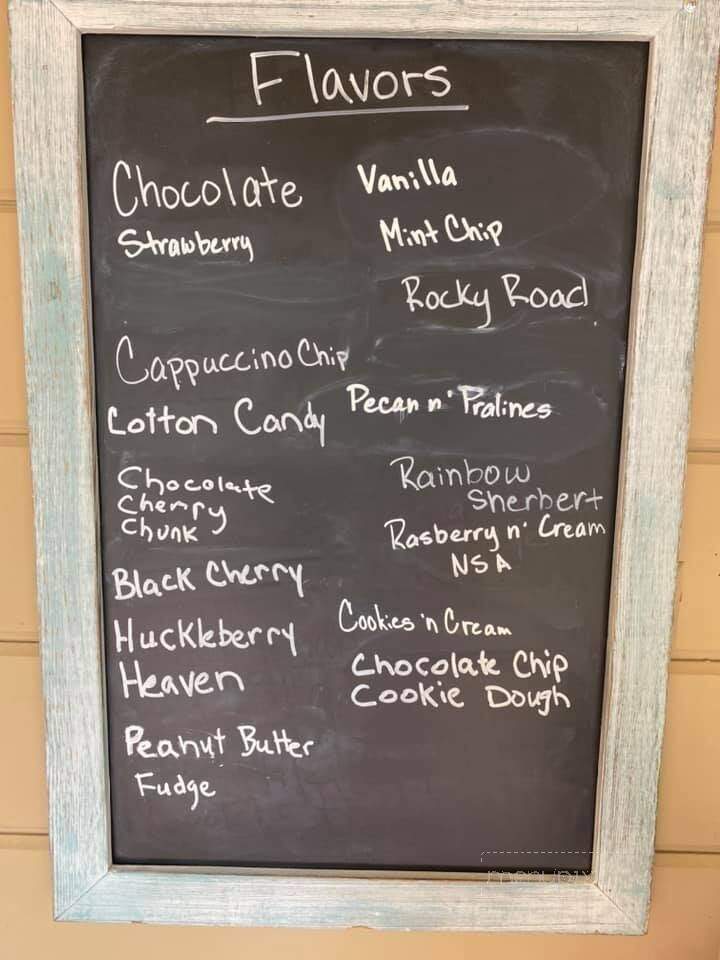 Flavors
Chocolate
Strawberry
Cappuccino Chip
Cotton Candy
Chocolate
Cherry
Chunk
Black Cherry
Huckleberry
Heaven
Peanut Butter
Fudge
Vanilla
Mint Chip
Rocky Road
Pecan n' Pralines
Rainbow
Sherbert
Rasberry n' Cream
NSA
Cookies 'n Cream
Chocolate Chip
Cookie Dough